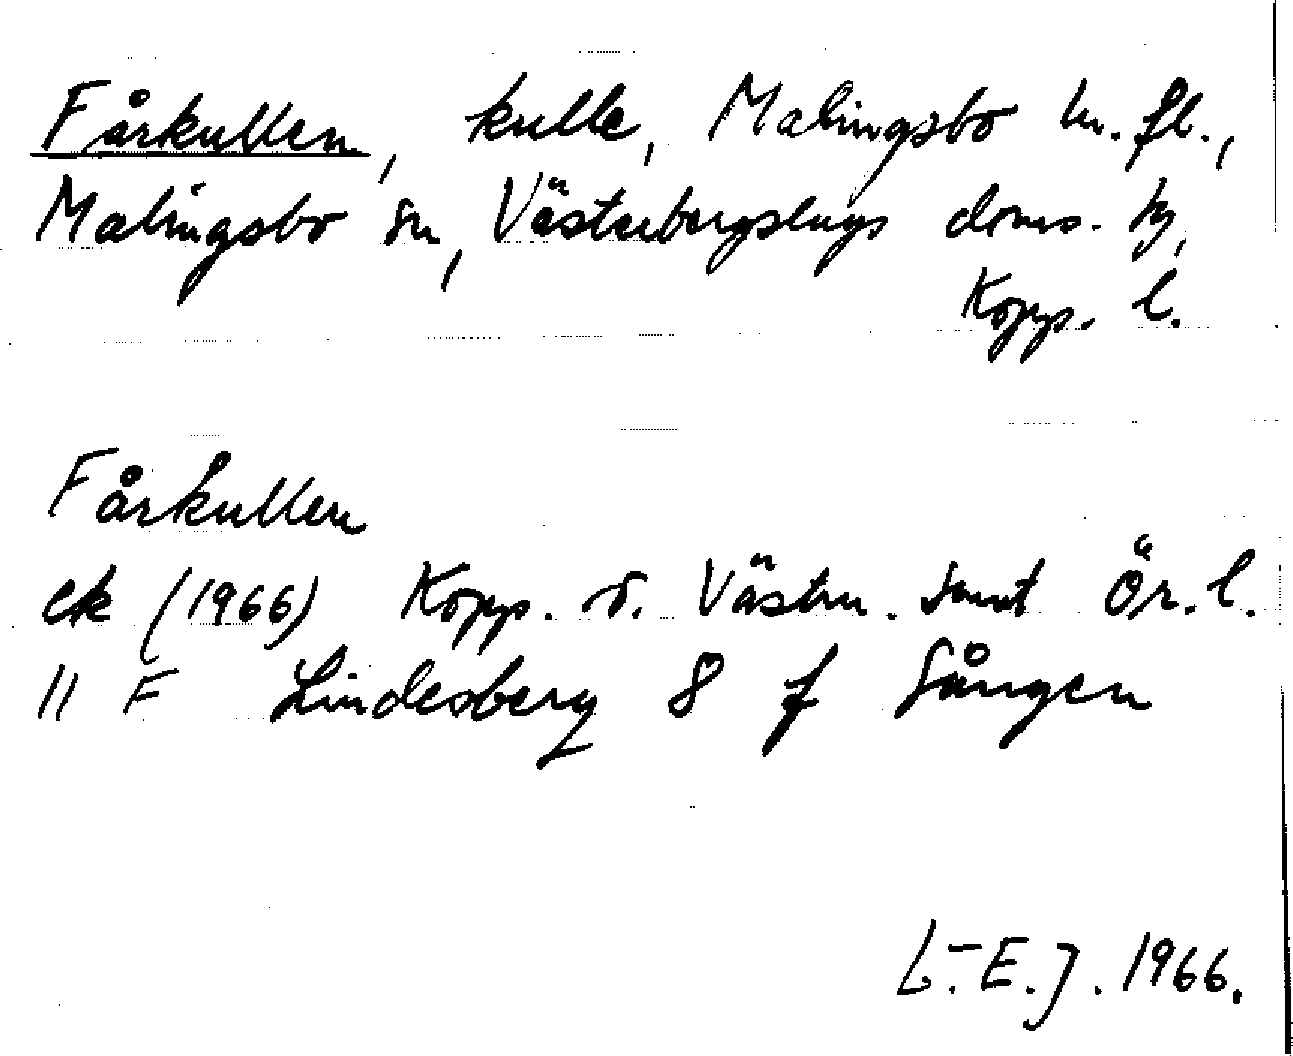 Fårkullen, kulle, Malingsbo m. fl.,
Malingsbo sn, Västerbergslags doms. hg,
Kopp. l.
Fårkullen
ek (1966) Kopp. o. Västm. samt Ör. l.
11 F Lindesberg 8 f Sången
L.-E. J. 1966.